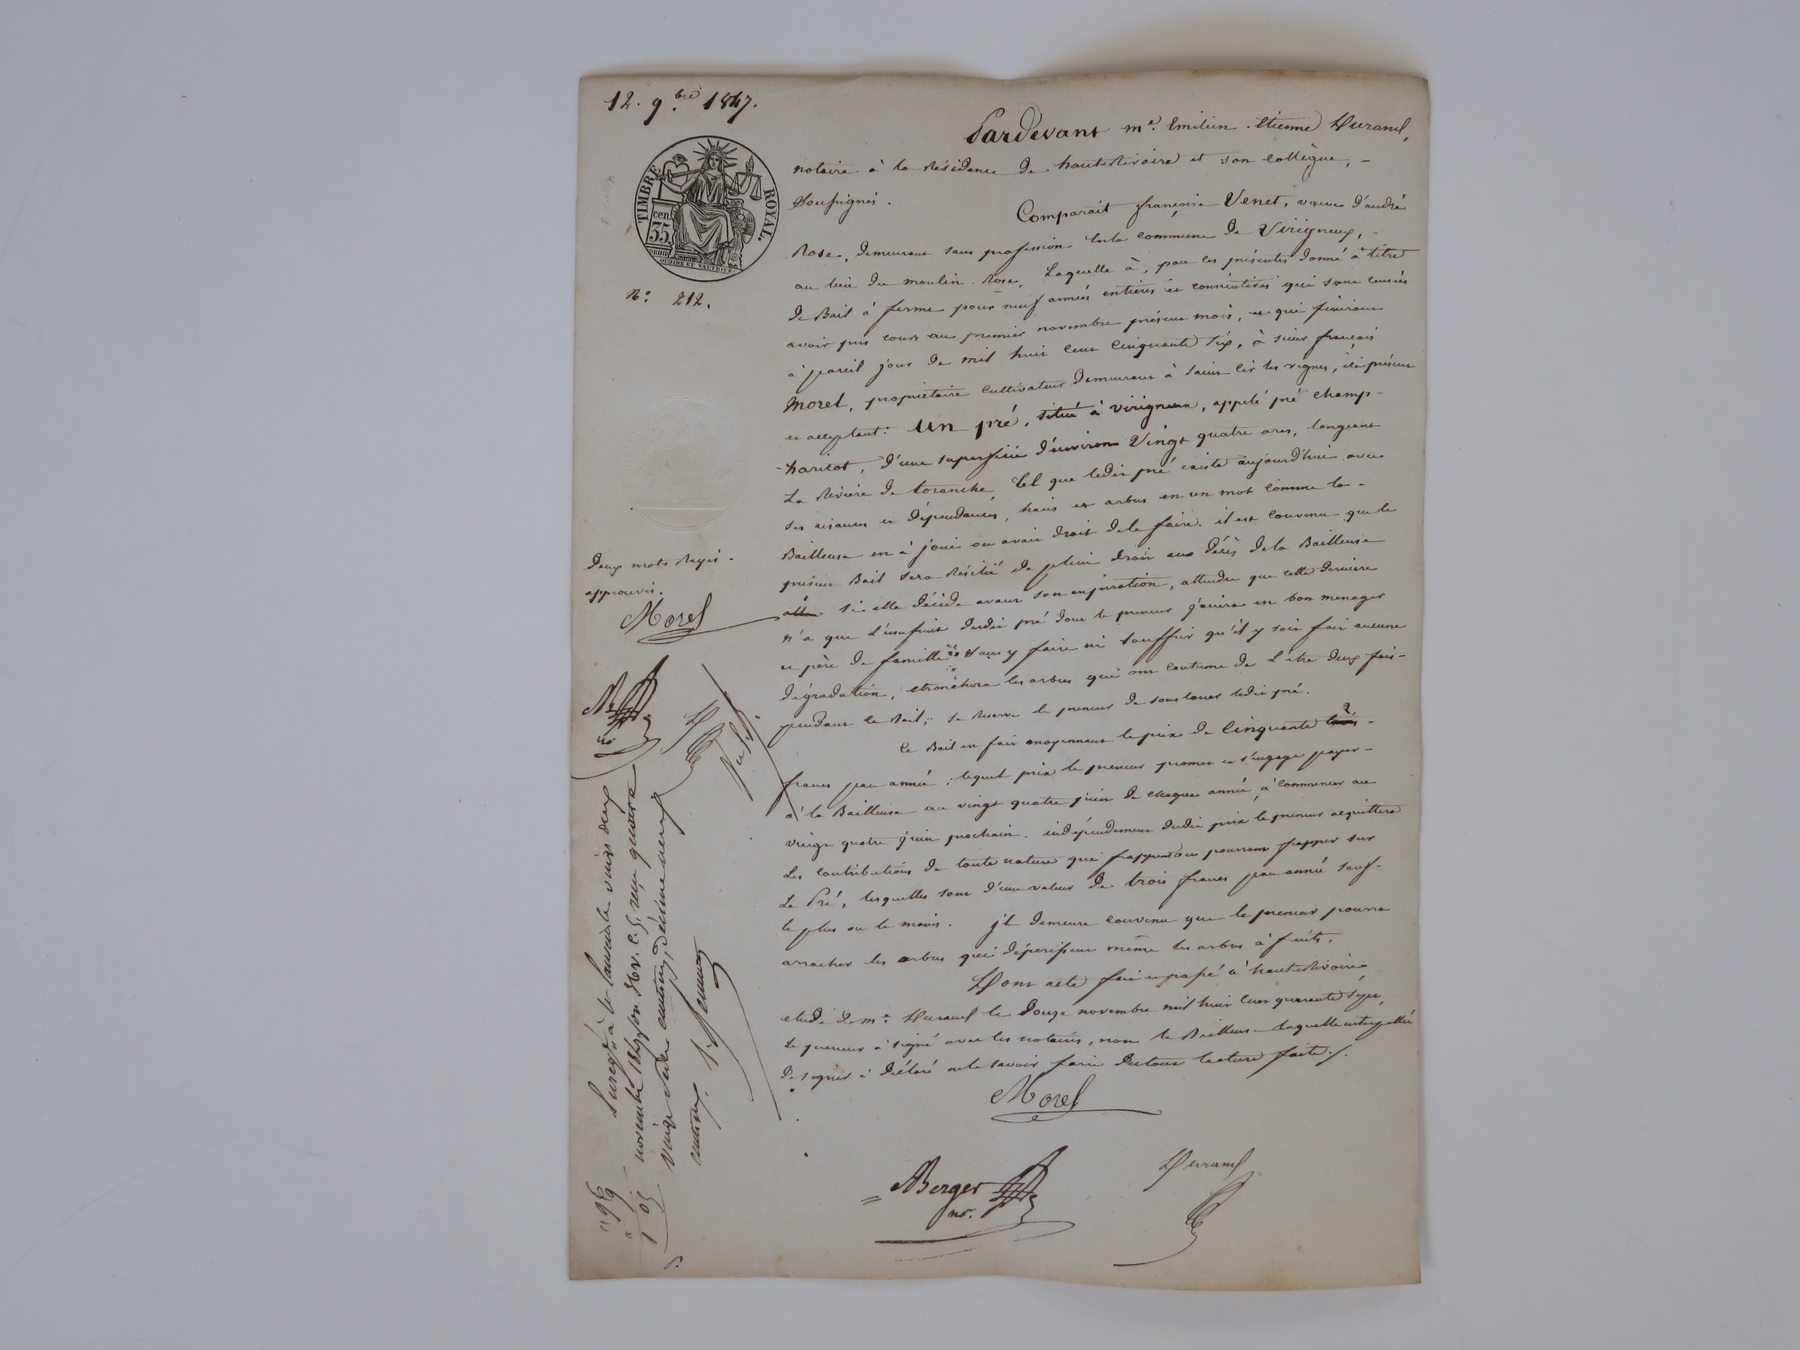 12. 9bre 1847.
TIMBRE ROYAL.
cen. 35.
N° 212.
Pardevant me. Emilien Etienne Durand,
notaire à la Résidence de hauterivoire et son collègue, -
Soussignés.
Comparaît françoise Venet, veuve d'andré
Rose, demeurant sans profession en la commune de Virigneux, -
au lieu du moulin Rose, Laquelle à, par ces présentes donné à titre
de Bail à ferme pour neuf années entières et consécutives qui sont censées
avoir pris cours au premier novembre présent mois, et qui finiront
à pareil jour de mil huit cent cinquante six, à sieur françois
Morel, propriétaire cultivateur demeurant à saint cir les vignes, ici présent
et acceptant: un pré, situé à virigneux, appelé pré champ-
-haricot, d'une superficie d'environ Vingt quatre ares, longeant
La Rivière de toranche, tel que ledit pré existe aujourd'hui avec
ses aisances et dépendances, haies et arbres en un mot comme la -
Bailleuse en à joui ou avait droit de le faire. il est convenu que le
présent Bail sera Résilié de plein droit au décès de la Bailleuse
si elle décède avant son expiration, attendu que cette dernière
n'a que L'usufruit dudit pré dont le preneur jouira en bon menager
et père de famille sans y faire ni souffrir qu'il y soit fait aucune
dégradation, etronchera les arbres qui ont coutume de L'être deux fois -
pendant le Bail; se reserve le preneur de sous louer ledit pré.
Ce Bail est fait moyennant le prix de Cinquante
francs par année, lequel prix le preneur promet et s'engage payer -
à la Bailleuse au vingt quatre juin de chaque année, à commencer au
vingt quatre juin prochain. indépendamment dudit prix le preneur acquittera
Les contributions de toute nature qui frappent ou pourront frapper sur
Le Pré, lesquelles sont d'une valeur de trois francs par année sauf -
le plus ou le moins. jl demeure convenu que le preneur pourra
arracher les arbres qui dépérissent même les arbres à fruits.
Dont acte fait et passé à hauterivoire,
etude de me. Durand le douze novembre mil huit cent quarante sept,
Le preneur à signé avec les notaires, non la Bailleuse laquelle interpellée
de signer à déclaré ne le savoir faire du tout lecture faite ./.
Morel
Berger
nre.
Durand
deux mots Rayés -
approuvés.
Morel
Enregé à St Laurent le vingt deux
novembre 1847 fo
reçu quatre
vingt seize centimes, décime neuf
centimes.
96
9
1 05